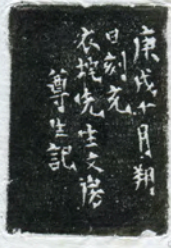 庚戌十月朔
日刻充
衣垞先生文房
尊生記